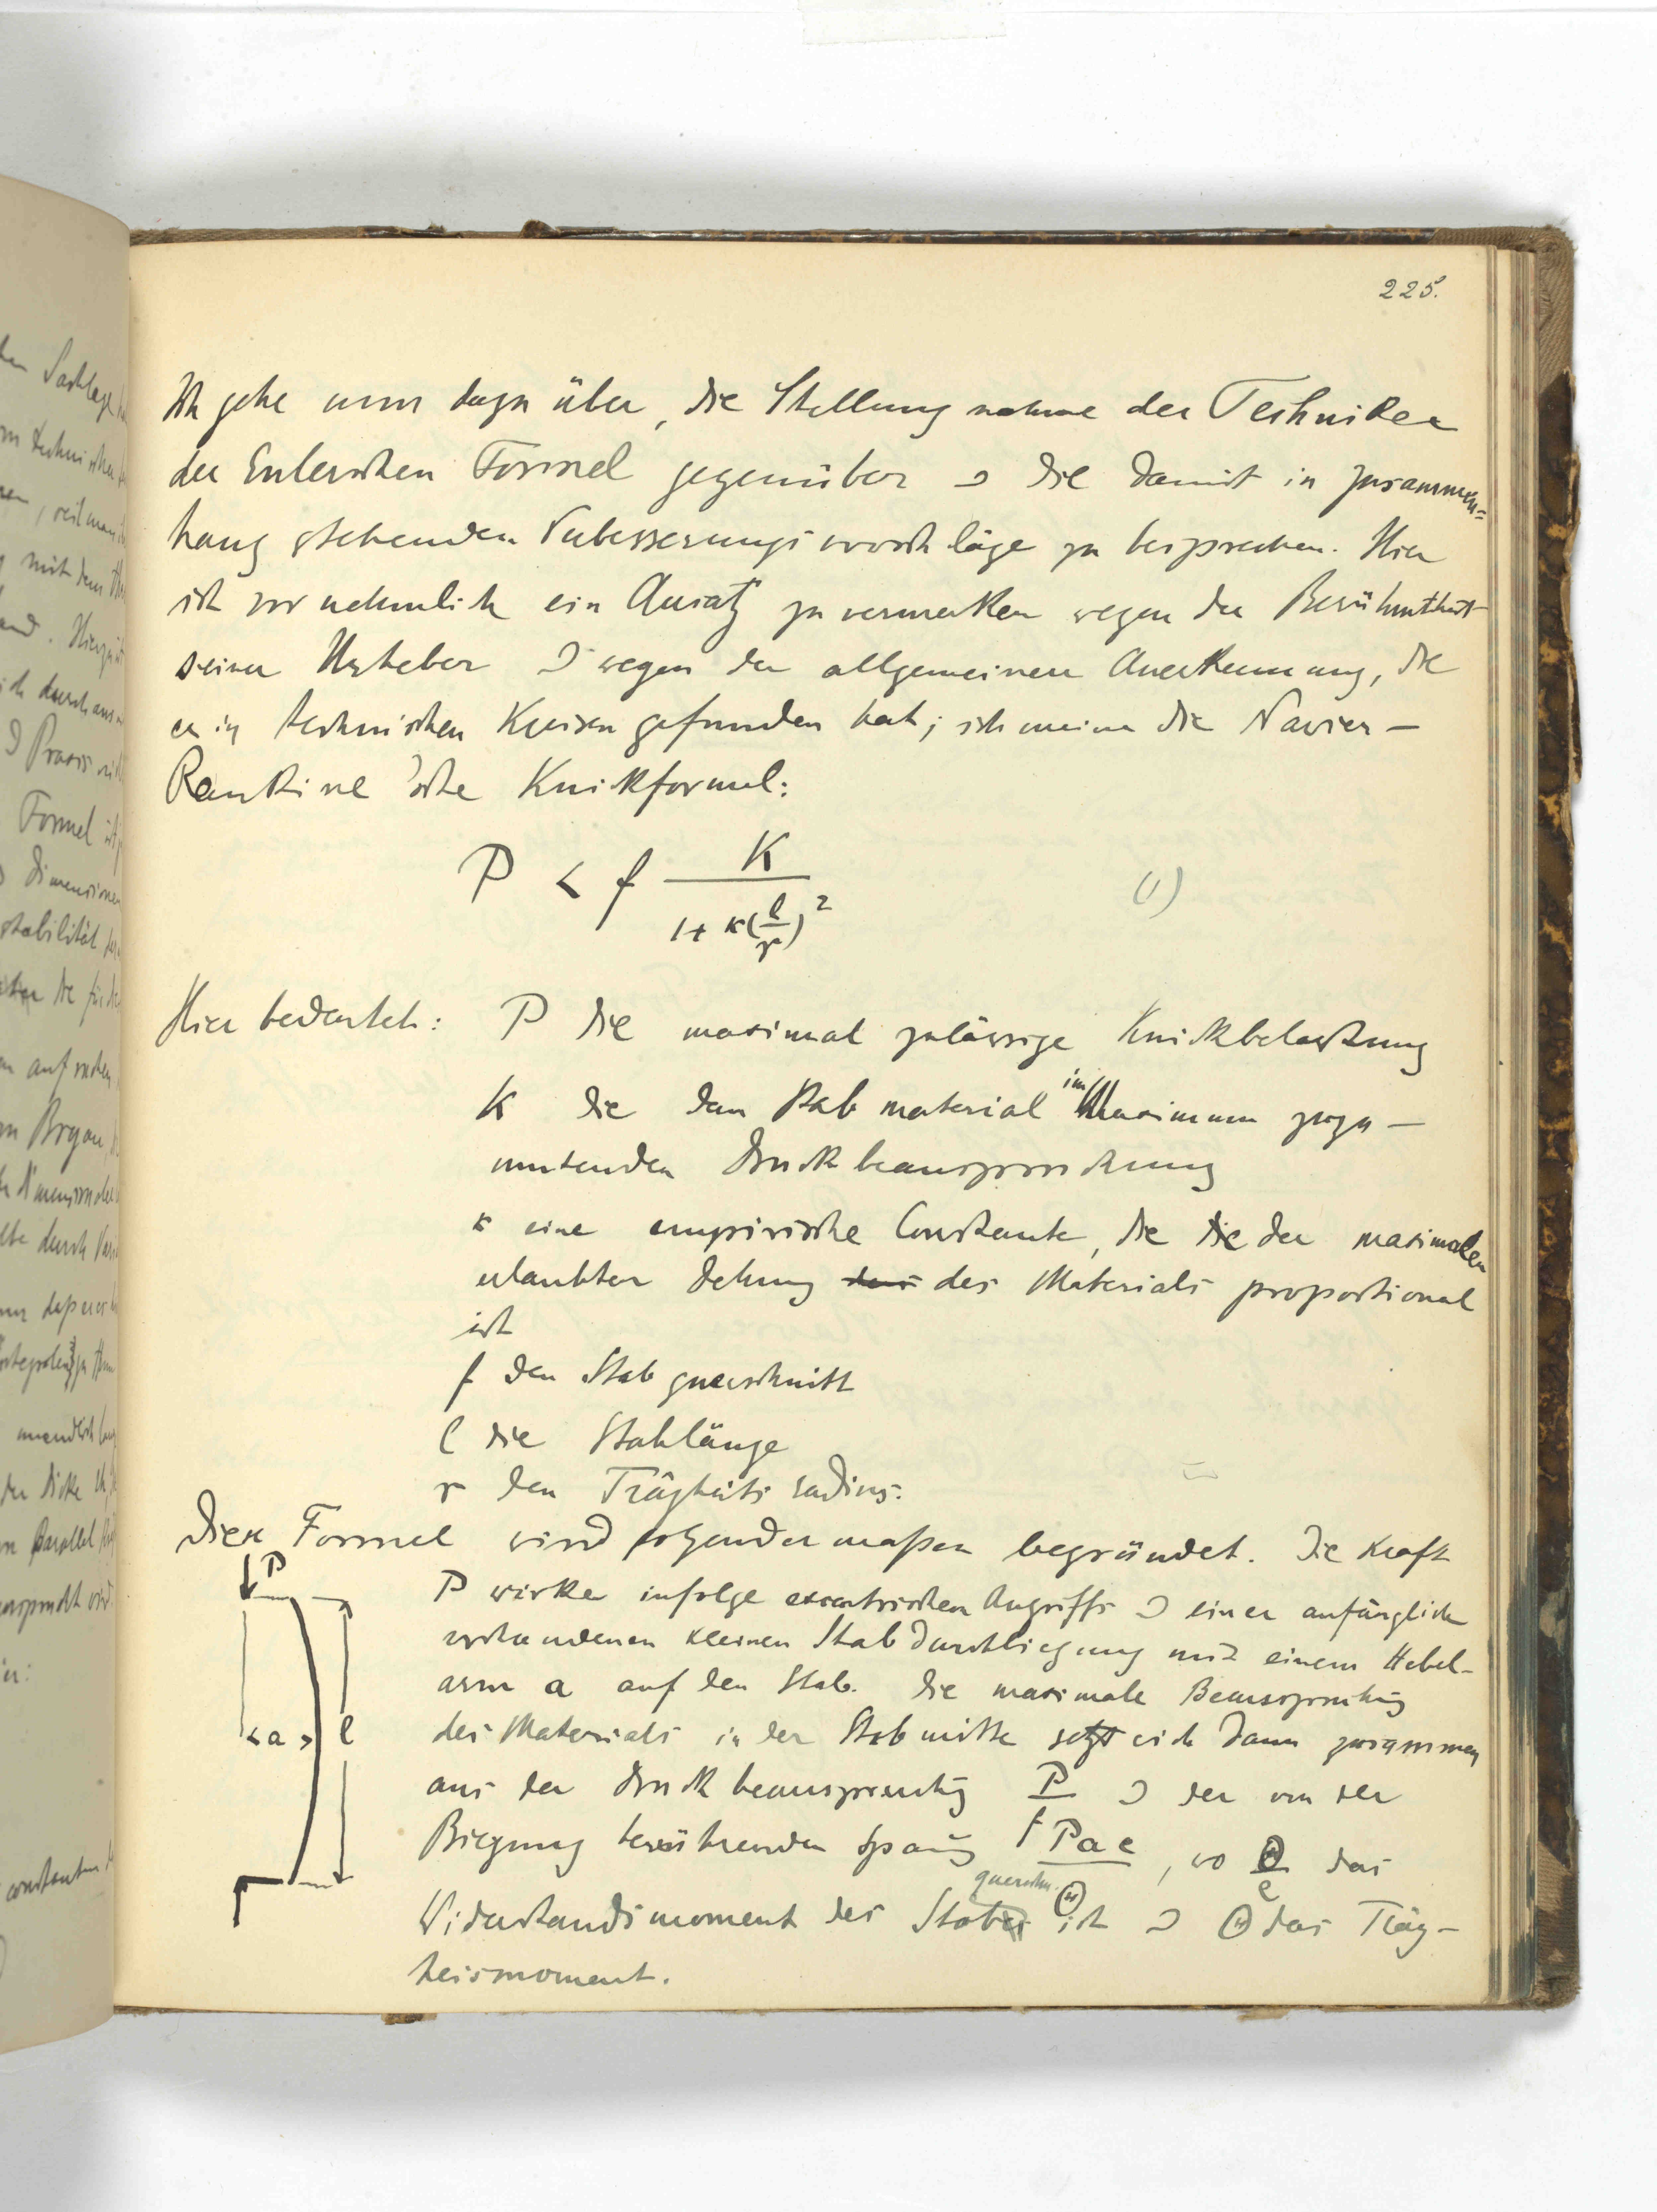 225.
Ich gehe nun dazu über, die Stellungnahme der Techniker
der Eulerschen Formel gegenüber u die damit in Zusammen=
hang stehenden Verbesserungsvorschläge zu besprechen. Hier
ist vornehmlich ein Ansatz zu vermerken wegen der Berühmtheit
seiner Urheber u wegen der allgemeinen Anerkennung, die
er in technischen Kreisen gefunden hat; ich meine die Navier-
Rankine'sche Knickformel:
P < f K / (1 + κ(l/r)²) (1)
Hier bedeutet: P die maximal zulässige Knickbelastung
K die dem Stabmaterial im Maximum zuzu-
mutenden Druckbeanspruchung
κ eine empirische Constante, die die der maximalen
erlaubten Dehnung des Materials proportional
ist
f den Stabquerschnitt
l die Stablänge
r den Trägheitsradius.
Diese Formel wird folgendermaßen begründet. Die Kraft
P wirke infolge excentrischen Angriffs u einer anfänglich
vorhandenen kleinen Stabdurchbiegung mit einem Hebel-
arm a auf den Stab. Die maximale Beanspruchung
des Materials in der Stabmitte setzt sich dann zusammen
aus der Druckbeanspruchung P/f u der von der
Biegung herrührenden Spanng Pae/Θ, wo Θ/e das
Widerstandsmoment des Stabquerschn. ist u Θ das Träg-
heismoment.
P
a
l